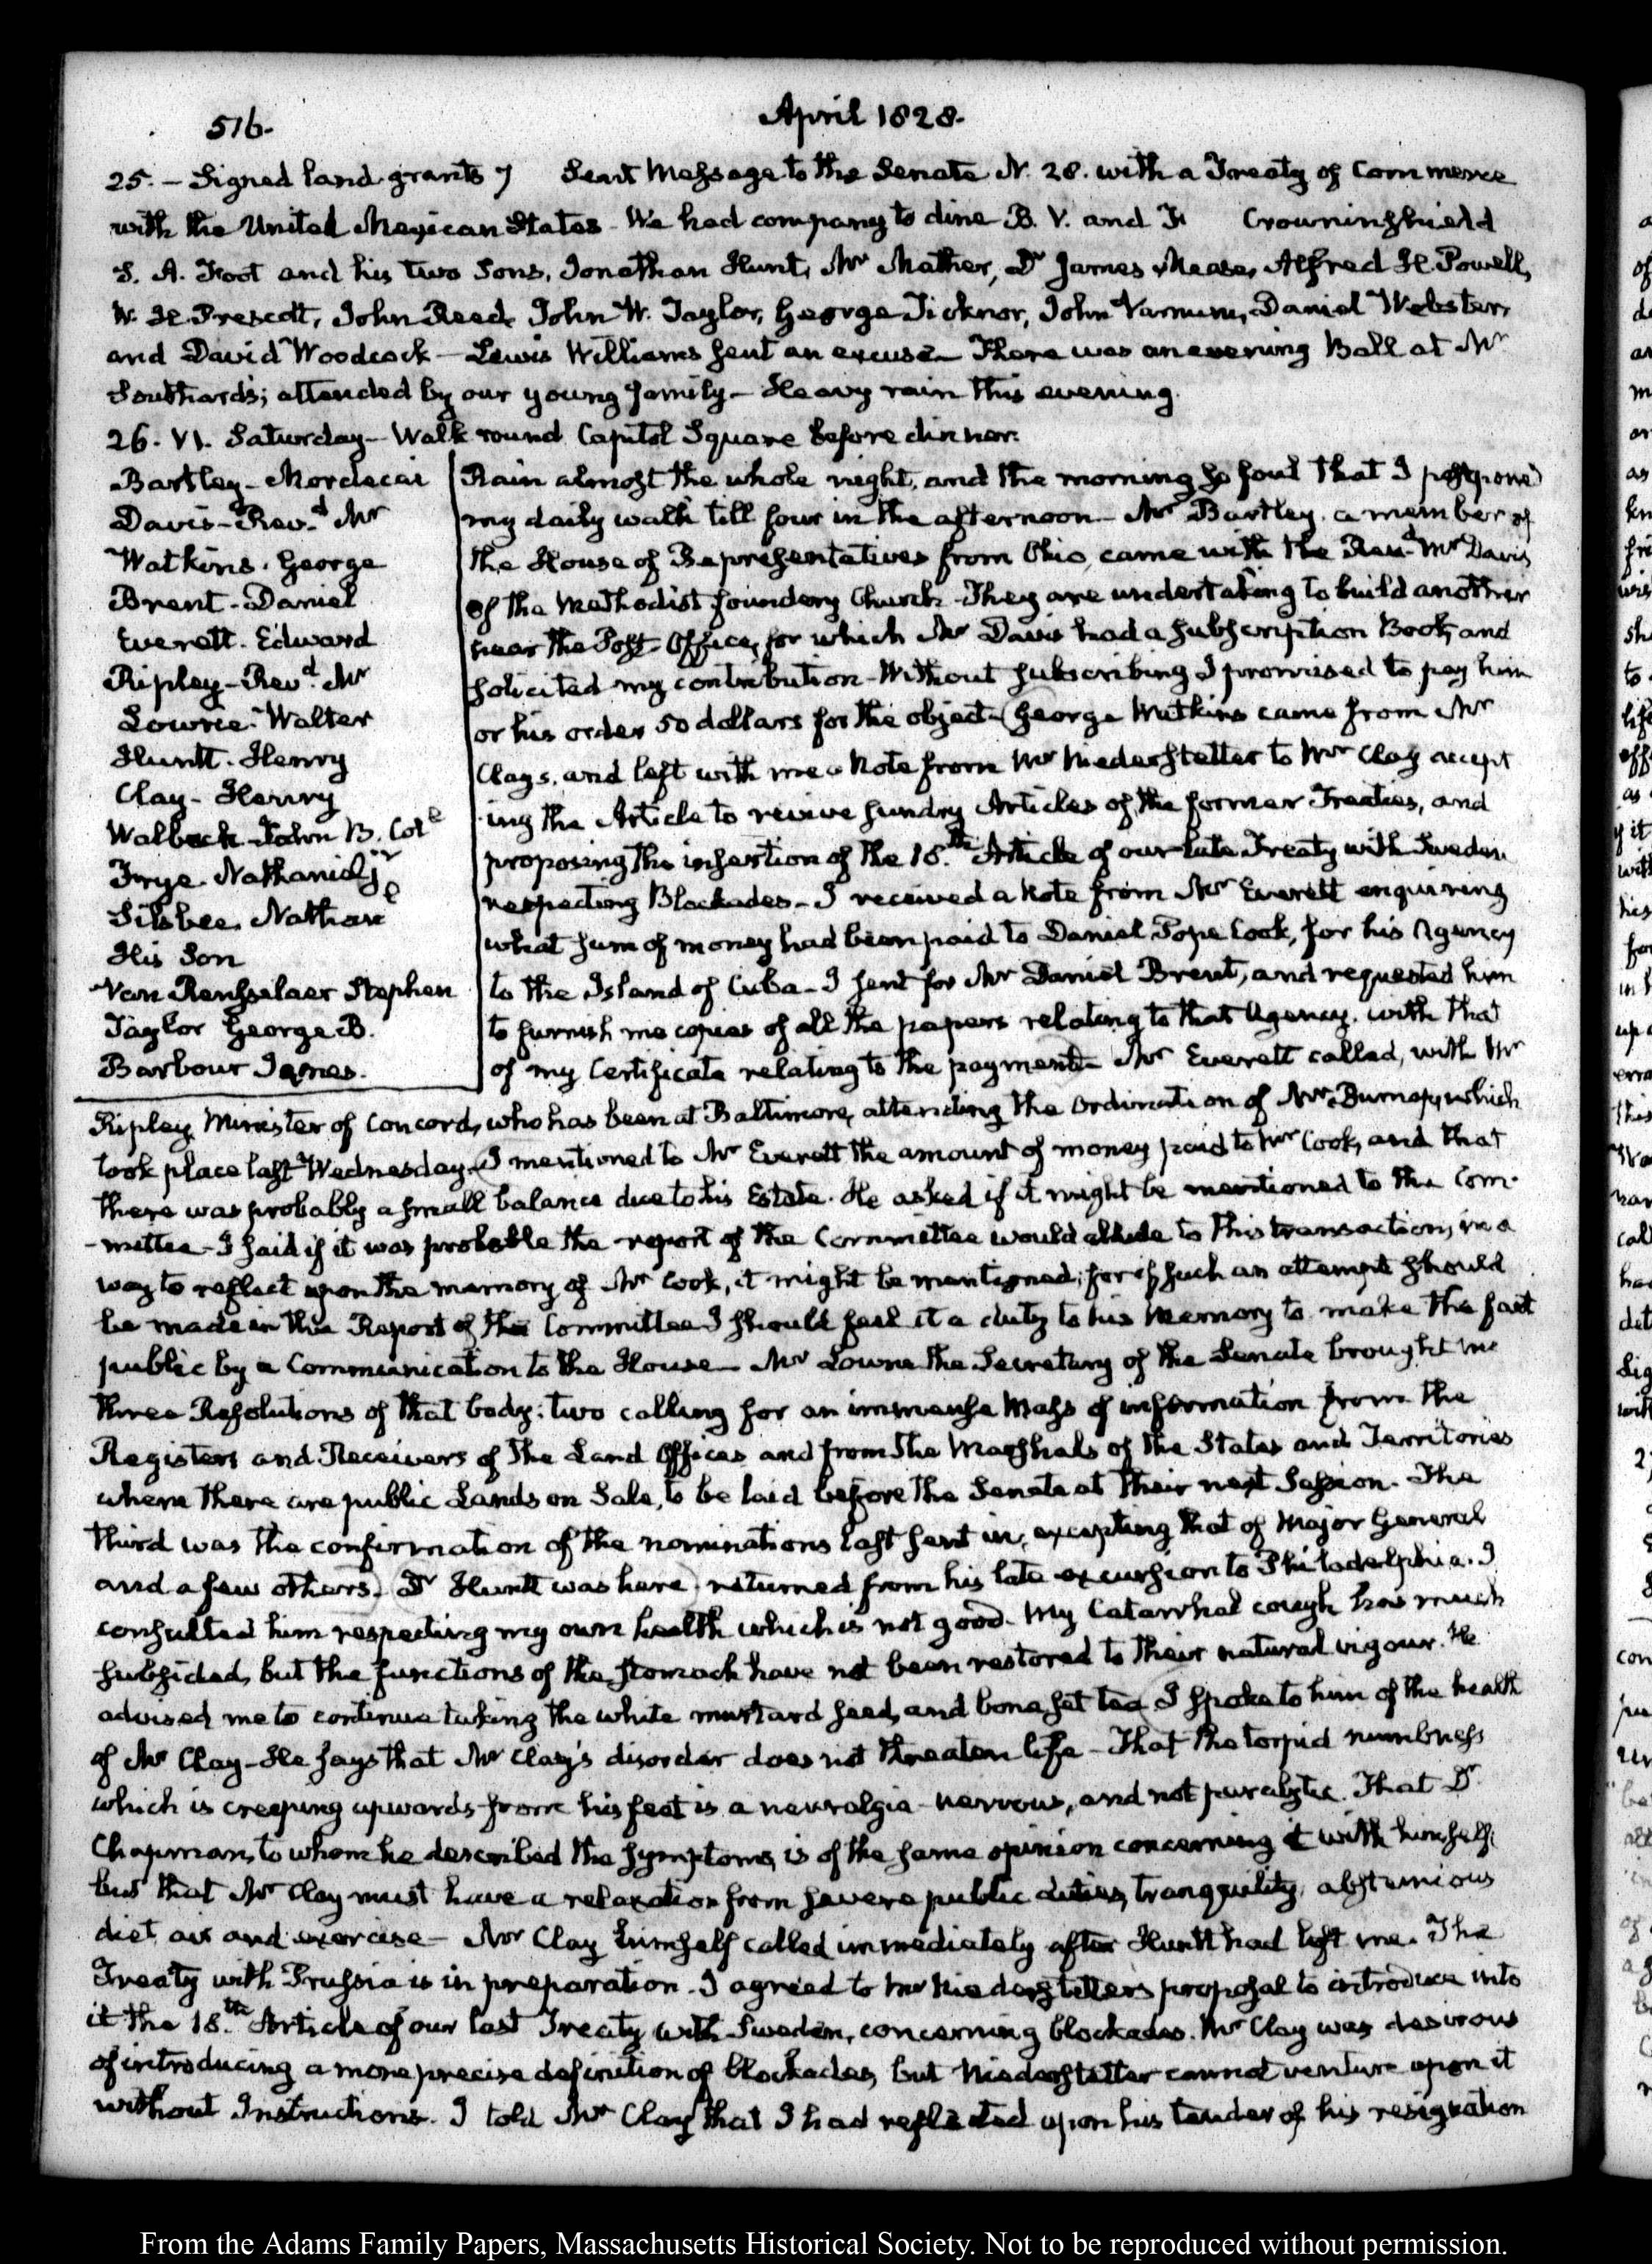 516.
April 1828.
25. – Signed land grants 7 Sent Message to the Senate N. 28. with a Treaty of Commerce
with the United Mexican States – We had company to dine B. V. and F. Crowninshield
S. A. Foot and his two Sons, Jonathan Hunt, Mr Mather, Dr James Mease, Alfred H. Powell,
W. H. Prescott, John Reed, John W. Taylor, George Ticknor, John Varnum, Daniel Webster,
and David Woodcock – Lewis Williams sent an excuse – There was an evening Ball at Mr
Southard's; attended by our young family – Heavy rain this evening.
26. VI. Saturday – Walk round Capitol Square before dinner.
Bartley – Mordecai
Davis – Revd. Mr
Watkins. George
Brent – Daniel
Everett. Edward
Ripley – Revd. Mr
Lowrie – Walter
Huntt. Henry
Clay – Henry
Walbach – John B. Coll
Frye. Nathaniel jr
Silsbee. Nathaniel
His Son
Van Rensselaer Stephen
Taylor George B.
Barbour James.
Rain almost the whole night, and the morning so foul that I postponed
my daily walk till four in the afternoon – Mr Bartley, a member of
the House of Representatives from Ohio, came with the Revd Mr Davis
of the Methodist foundery Church – They are undertaking to build another
near the Post-Office, for which Mr Davis had a subscription Book, and
solicited my contribution – Without subscribing I promised to pay him
or his order 50 dollars for the object – George Watkins came from Mr
Clay's, and left with me a Note from Mr Niederstetter to Mr Clay accept
ing the Article to revive sundry Articles of the former Treaties, and
proposing the insertion of the 18.th Article of our late Treaty with Sweden
respecting Blockades – I received a Note from Mr Everett enquiring
what sum of money had been paid to Daniel Pope Cook, for his Agency
to the Island of Cuba – I sent for Mr Daniel Brent, and requested him
to furnish me copies of all the papers relating to that Agency, with that
of my Certificate relating to the payment – Mr Everett called, with Mr
Ripley, Minister of Concord, who has been at Baltimore, attending the Ordination of Mr Burnap, which
took place last Wednesday. I mentioned to Mr Everett the amount of money paid to Mr Cook, and that
there was probably a small balance due to his Estate. He asked if it might be mentioned to the Com-
-mittee – I said if it was probable the report of the Committee would allude to this transaction, in a
way to reflect upon the memory of Mr Cook, it might be mentioned; for if such an attempt should
be made in the Report of the Committee I should feel it a duty to his Memory to make the fact
public by a Communication to the House – Mr Lowrie the Secretary of the Senate brought me
three Resolutions of that body: two calling for an immense Mass of information from the
Registers and Receivers of the Land Offices and from the Marshals of the States and Territories
where there are public Lands on Sale, to be laid before the Senate at their next Session. The
third was the confirmation of the nominations last sent in, excepting that of Major General
and a few others. Dr Huntt was here, returned from his late excursion to Philadelphia. I
consulted him respecting my own health which is not good. My Catarrhal cough has much
subsided, but the functions of the stomach have not been restored to their natural vigour. He
advised me to continue taking the white mustard seed, and boneset tea. I spoke to him of the health
of Mr Clay – He says that Mr Clay's disorder does not threaten life – That the torpid numbness
which is creeping upwards from his feet is a neuralgia – nervous, and not paralytic. That Dr
Chapman, to whom he described the symptoms, is of the same opinion concerning it with himself;
but that Mr Clay must have a relaxation from severe public duties, tranquility, abstemious
diet, air and exercise – Mr Clay himself called immediately after Huntt had left me. The
Treaty with Prussia is in preparation. I agreed to Mr Niederstetter's proposal to introduce into
it the 18.th Article of our last Treaty with Sweden, concerning blockades. Mr Clay was desirous
of introducing a more precise definition of blockades, but Niederstetter cannot venture upon it
without Instructions. I told Mr Clay that I had reflected upon his tender of his resignation
From the Adams Family Papers, Massachusetts Historical Society. Not to be reproduced without permission.